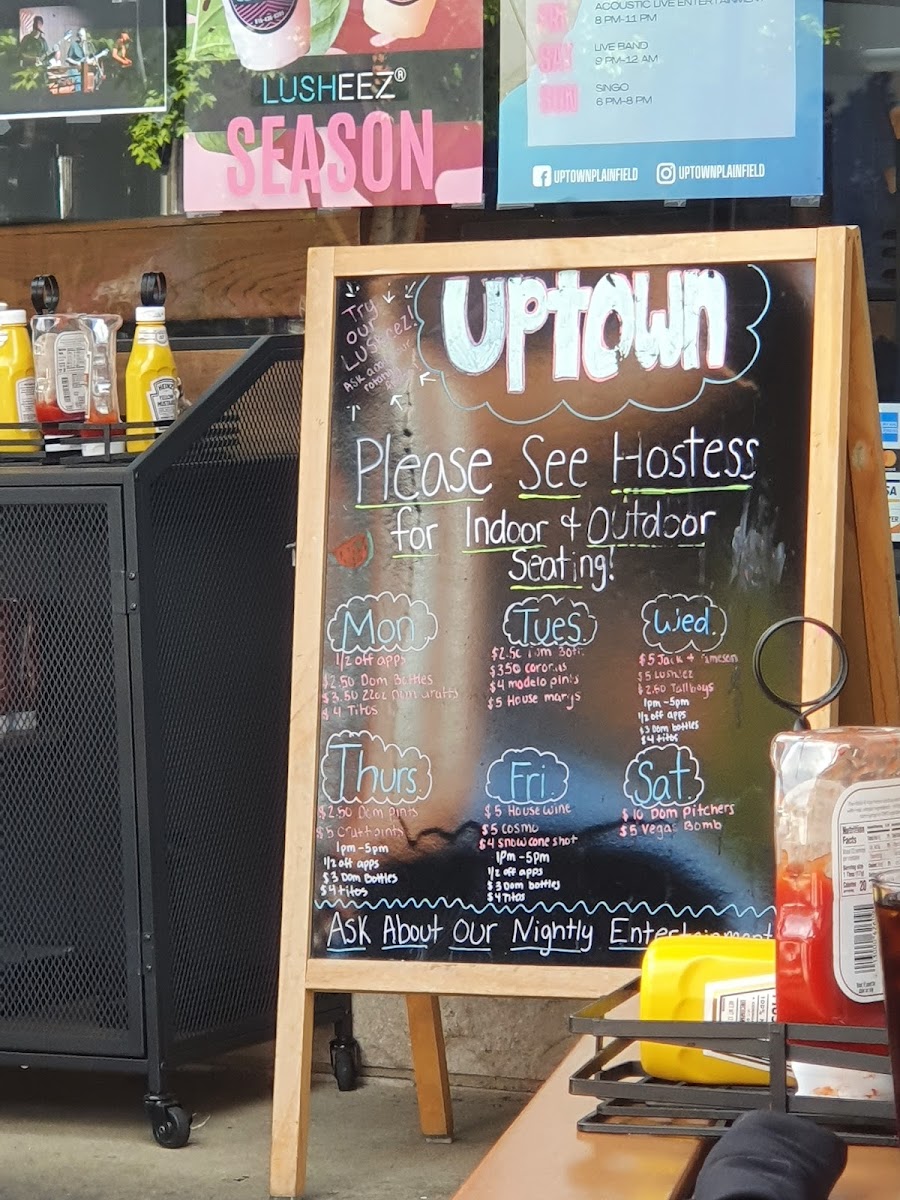 LUSHEEZ®
SEASON
ACOUSTIC LIVE ENTERTAINMENT
8 PM-11 PM
SAT
LIVE BAND
9 PM-12 AM
SUN
SINGO
6 PM-8 PM
UPTOWNPLAINFIELD
UPTOWNPLAINFIELD
Try
our
LUSHeez!
Uptown
Please See Hostess
for Indoor & Outdoor
Seating!
Mon
1/2 off apps
$2.50 Dom Bottles
$3.50 22oz Dom Drafts
$4 Titos
Tues.
$2.50 Dom Bott.
$3.50 coronas
$4 modelo pints
$5 House marys
Wed.
$5 Jack & Jameson
$5 Lusheez
$2.50 Tallboys
1pm-5pm
1/2 off apps
$3 Dom bottles
$4 titos
Thurs.
$2.50 Dom pints
$5 Craft pints
1pm-5pm
1/2 off apps
$3 Dom Bottles
$4 titos
Fri.
$5 House wine
$5 Cosmo
$4 Snow cone shot
1PM-5PM
1/2 off apps
$3 Dom bottles
$4 Titos
Sat.
$10 Dom Pitchers
$5 Vegas Bomb
Ask About Our Nightly Entertainment
HEINZ
Nutrition
Facts